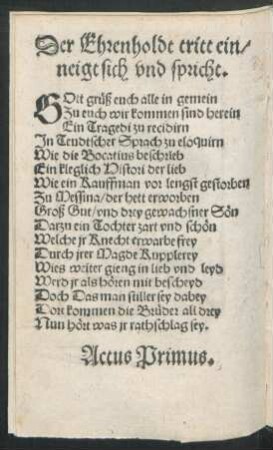 Der Ehrenholdt tritt ein/
neigt sich vnd spricht.
GOtt grüß euch alle in gemein
Zu euch wir kommen sind herein
Ein Tragedi zu recidirn
In Teudtscher Sprach zu eloquirn
Wie die Bocatius beschrieb
Ein kleglich Histori der lieb
Wie ein Kauffman vor lengst gestorben
Zu Messina/der hett erworben
Groß Gut/vnd drey gewachsner Sön
Darzu ein Tochter zart vnd schön
Welche jr Knecht erwarbe frey
Durch jrer Magde Kupplerey
Wies weiter gieng in lieb vnd leyd
Werd jr als hören mit bescheyd
Doch Das man stiller sey dabey
Dort kommen die Brüder all drey
Nun hört was jr rathschlag sey.
Actus Primus.